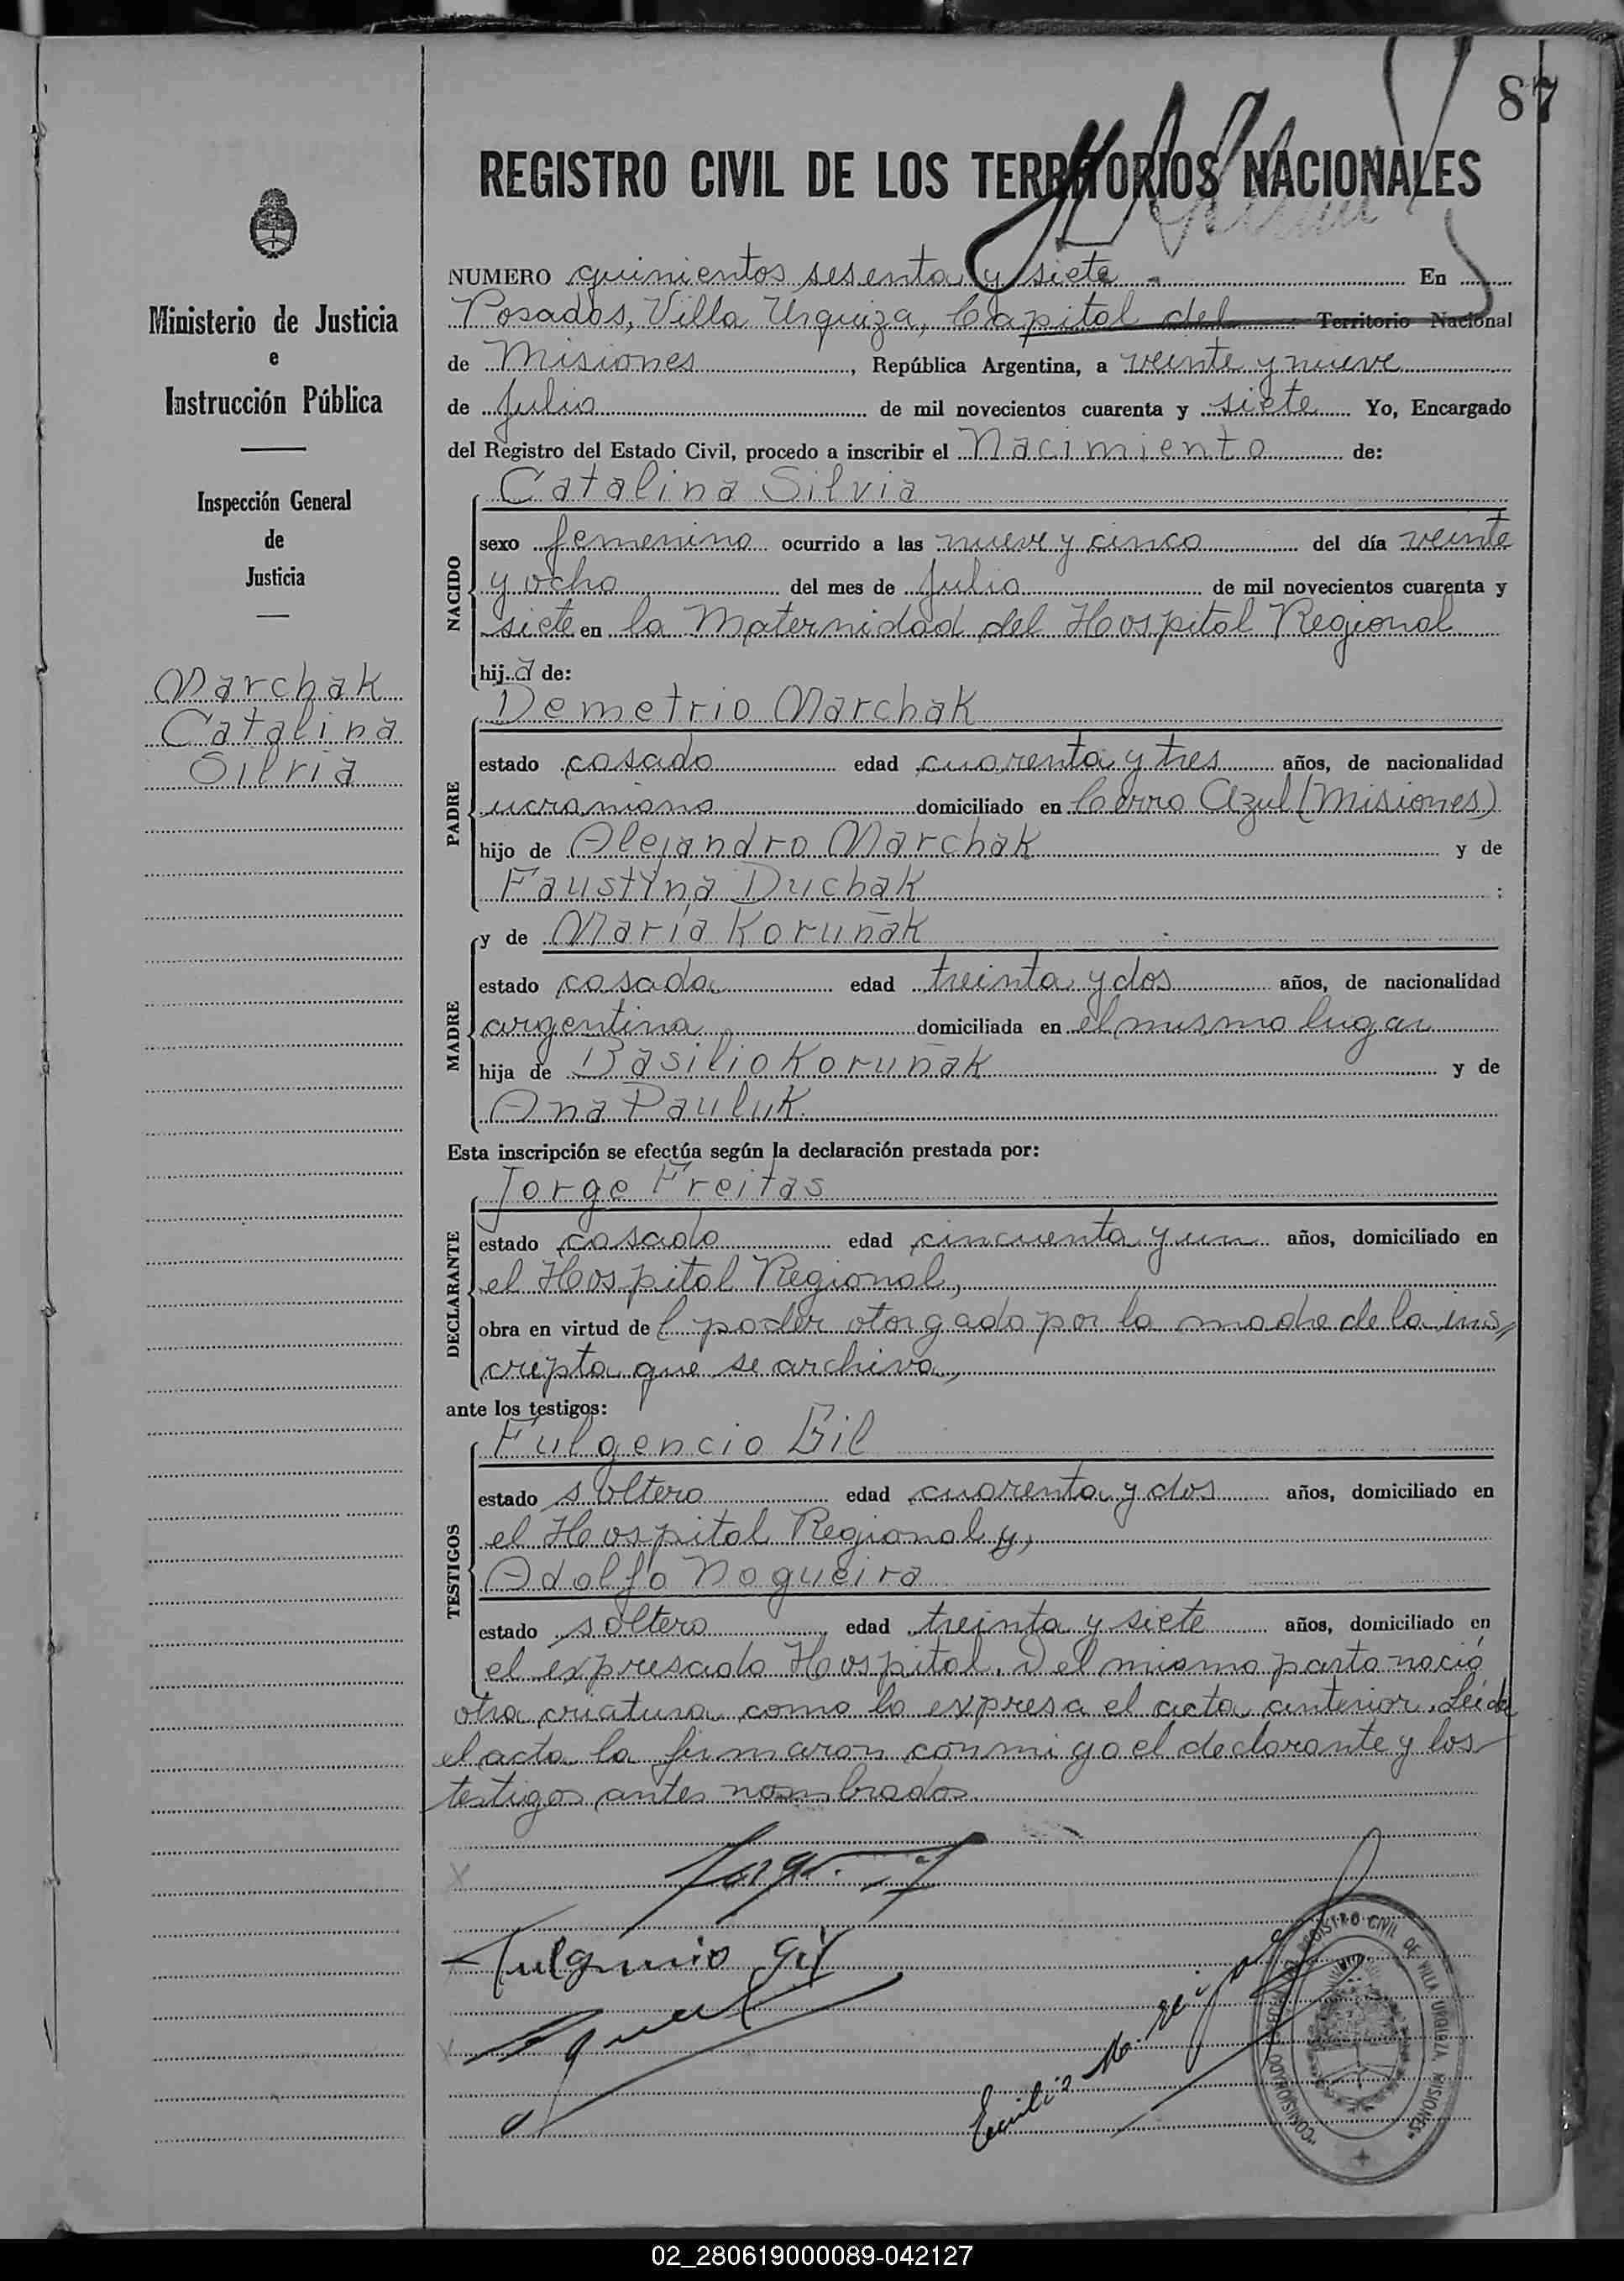 87
REGISTRO CIVIL DE LOS TERRITORIOS NACIONALES
Ministerio de Justicia
e
Instrucción Pública
Inspección General
de
Justicia
Marchak
Catalina
Silvia
NUMERO quinientos sesenta y siete - En
Posadas, Villa Urquiza, Capital del Territorio Nacional
de Misiones, República Argentina, a veinte y nueve
de Julio de mil novecientos cuarenta y siete Yo, Encargado
del Registro del Estado Civil, procedo a inscribir el Nacimiento de:
NACIDO
Catalina Silvia
sexo femenino ocurrido a las nueve y cinco del día veinte
y ocho del mes de Julio de mil novecientos cuarenta y
siete en la Maternidad del Hospital Regional
hija de:
PADRE
Demetrio Marchak
estado casado edad cuarenta y tres años, de nacionalidad
ucraniano domiciliado en Cerro Azul (Misiones)
hijo de Alejandro Marchak y de
Faustina Duchak ;
MADRE
y de María Koruñak
estado casada edad treinta y dos años, de nacionalidad
argentina domiciliada en el mismo lugar
hija de Basilio Koruñak y de
Ana Pauluk
Esta inscripción se efectúa según la declaración prestada por:
DECLARANTE
Jorge Freitas
estado casado edad cincuenta y un años, domiciliado en
el Hospital Regional,
obra en virtud del poder otorgado por la madre de la ins,,
cripta que se archiva,
ante los testigos:
TESTIGOS
Fulgencio Gil
estado soltero edad cuarenta y dos años, domiciliado en
el Hospital Regional y,
Adolfo Nogueira
estado soltero edad treinta y siete años, domiciliado en
el expresado Hospital. Del mismo parto nació
otra criatura como lo expresa el acta anterior. Leida
el acta la firmaron conmigo el declarante y los
testigos antes nombrados
Fulgencio Gil
Emilio
REGISTRO CIVIL DE VILLA URQUIZA, MISIONES
02_280619000089-042127